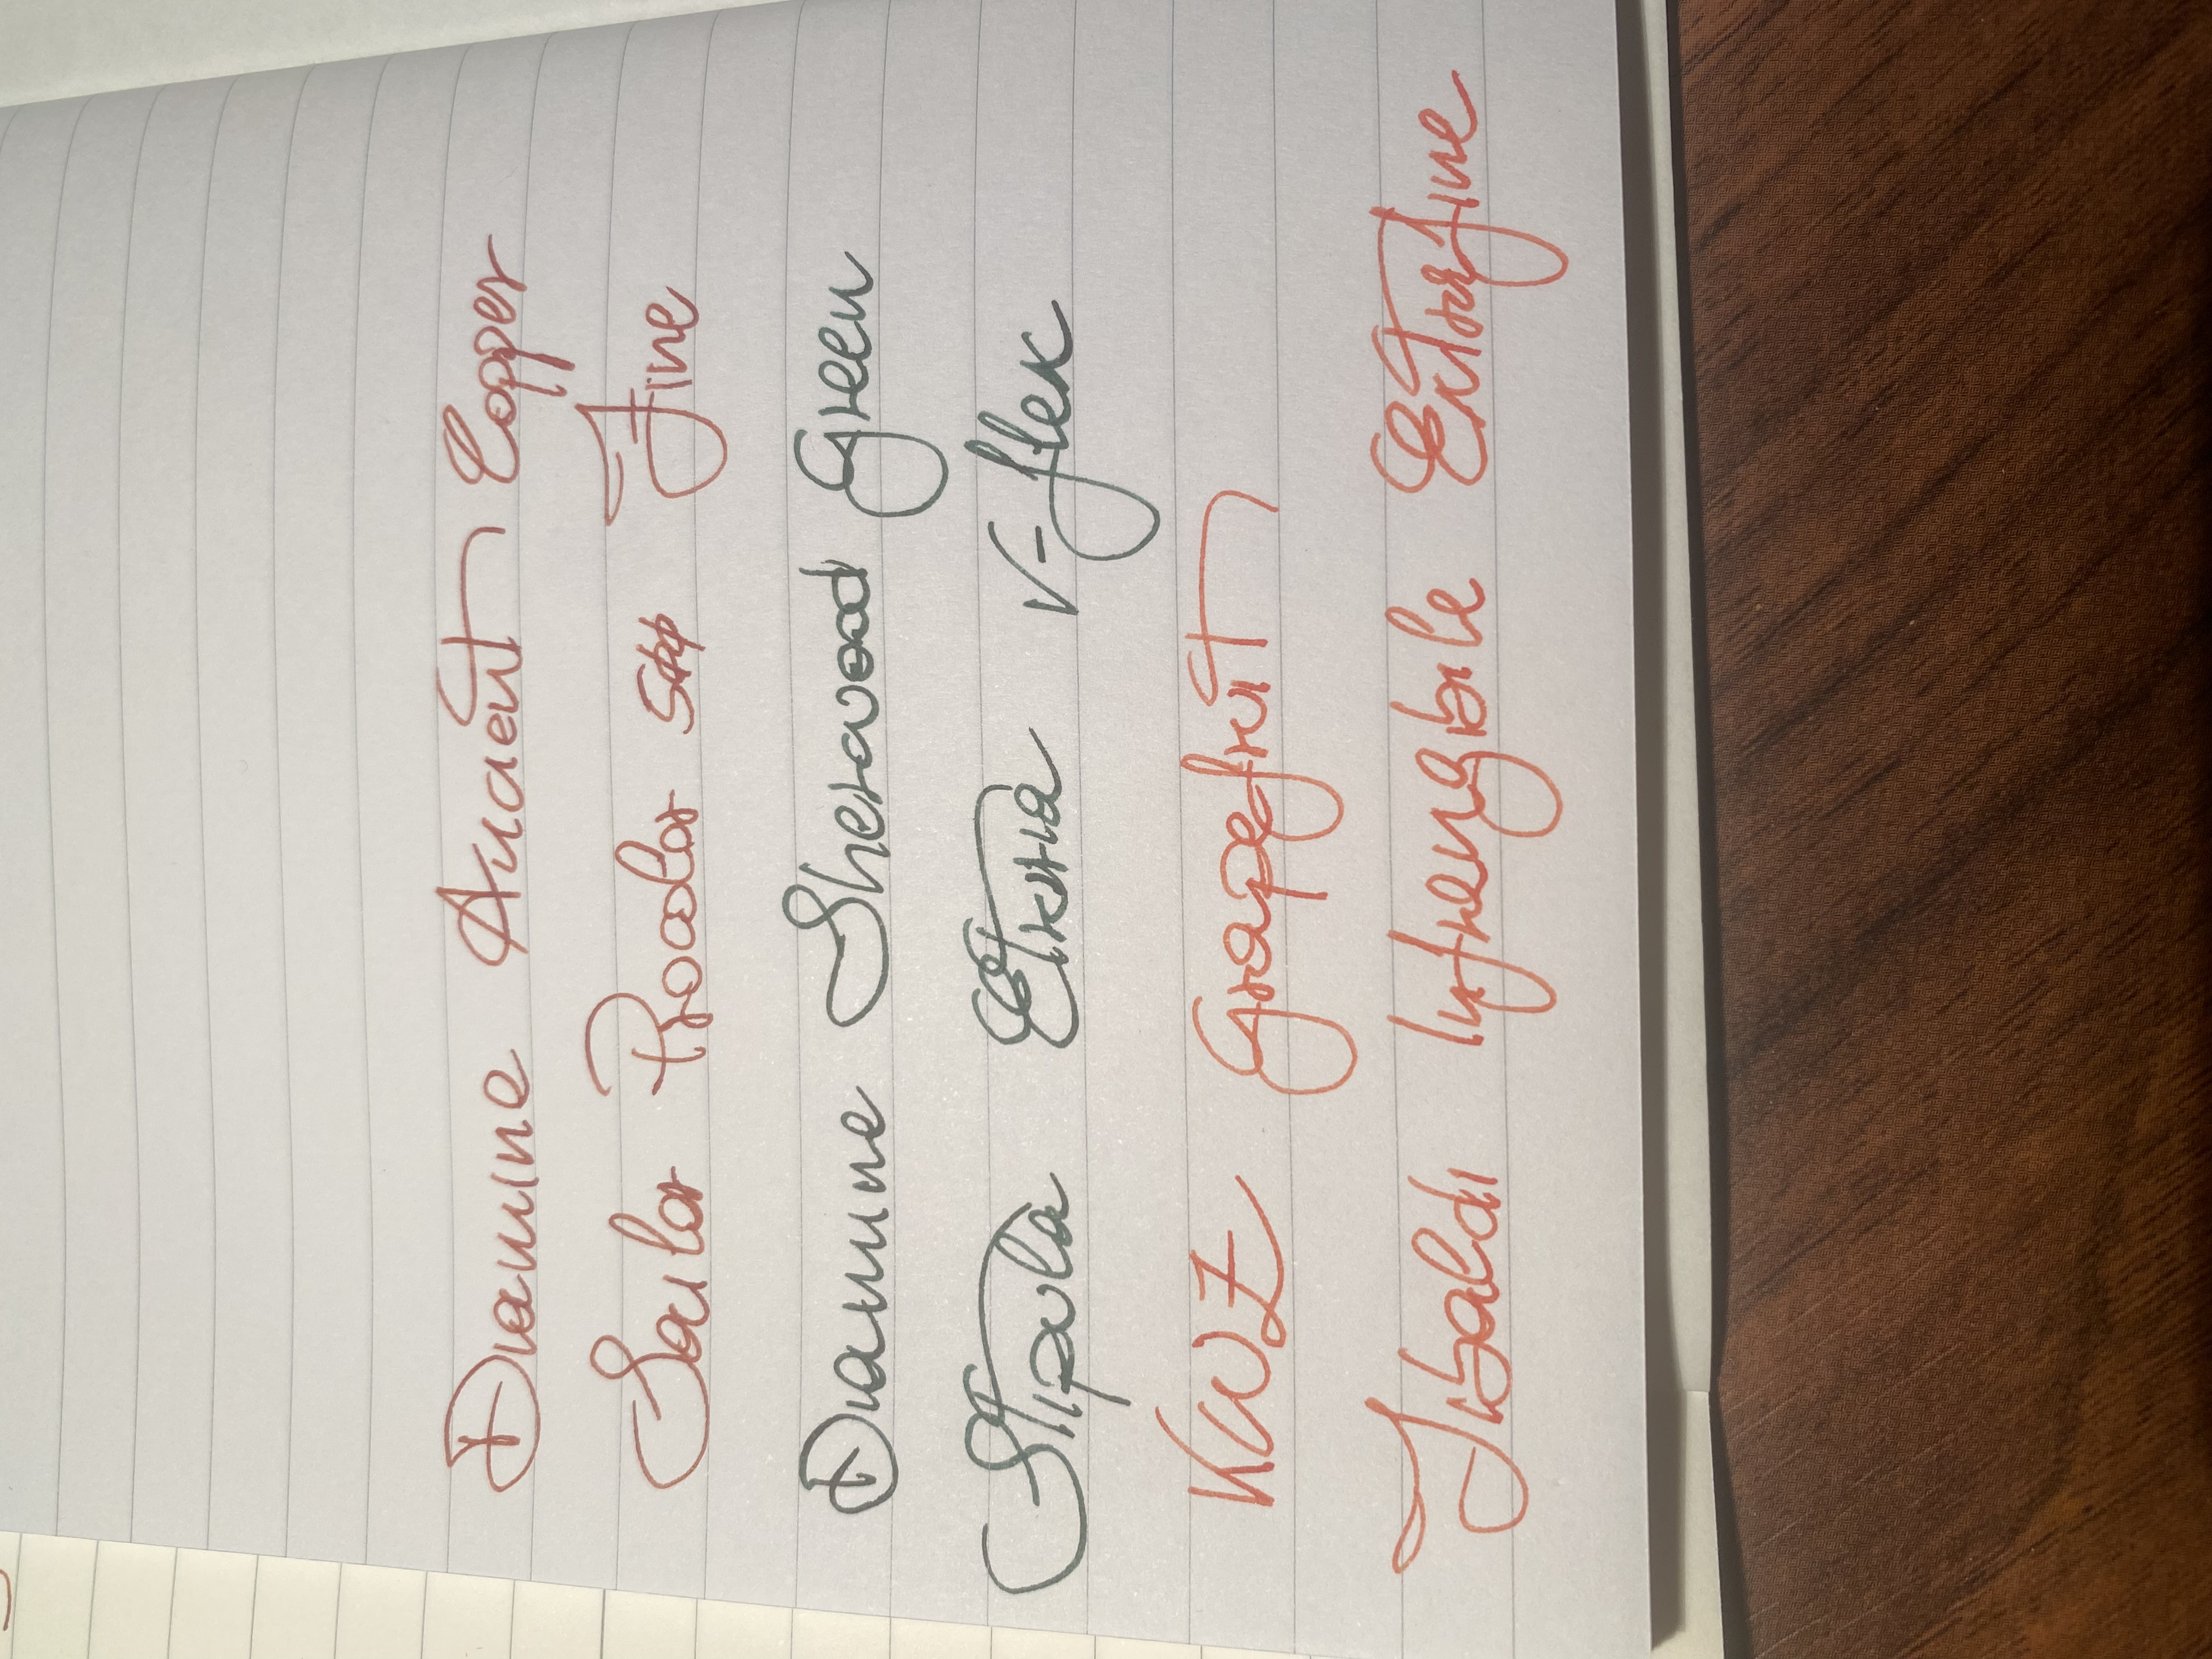 Diamine Ancient Copper
Sailor Procolor Fine
Diamine Sherwood Green
Stipula Etruria V-flex
KWZ Grapefruit
Tibaldi Infrangibile Extrafine